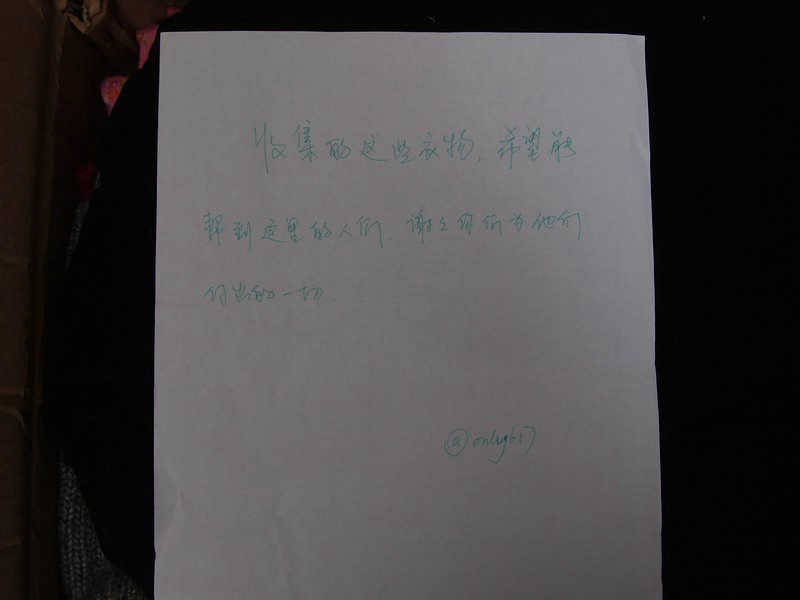 收集的这些衣物，希望能
帮到这里的人们，谢谢你们为他们
付出的一切.